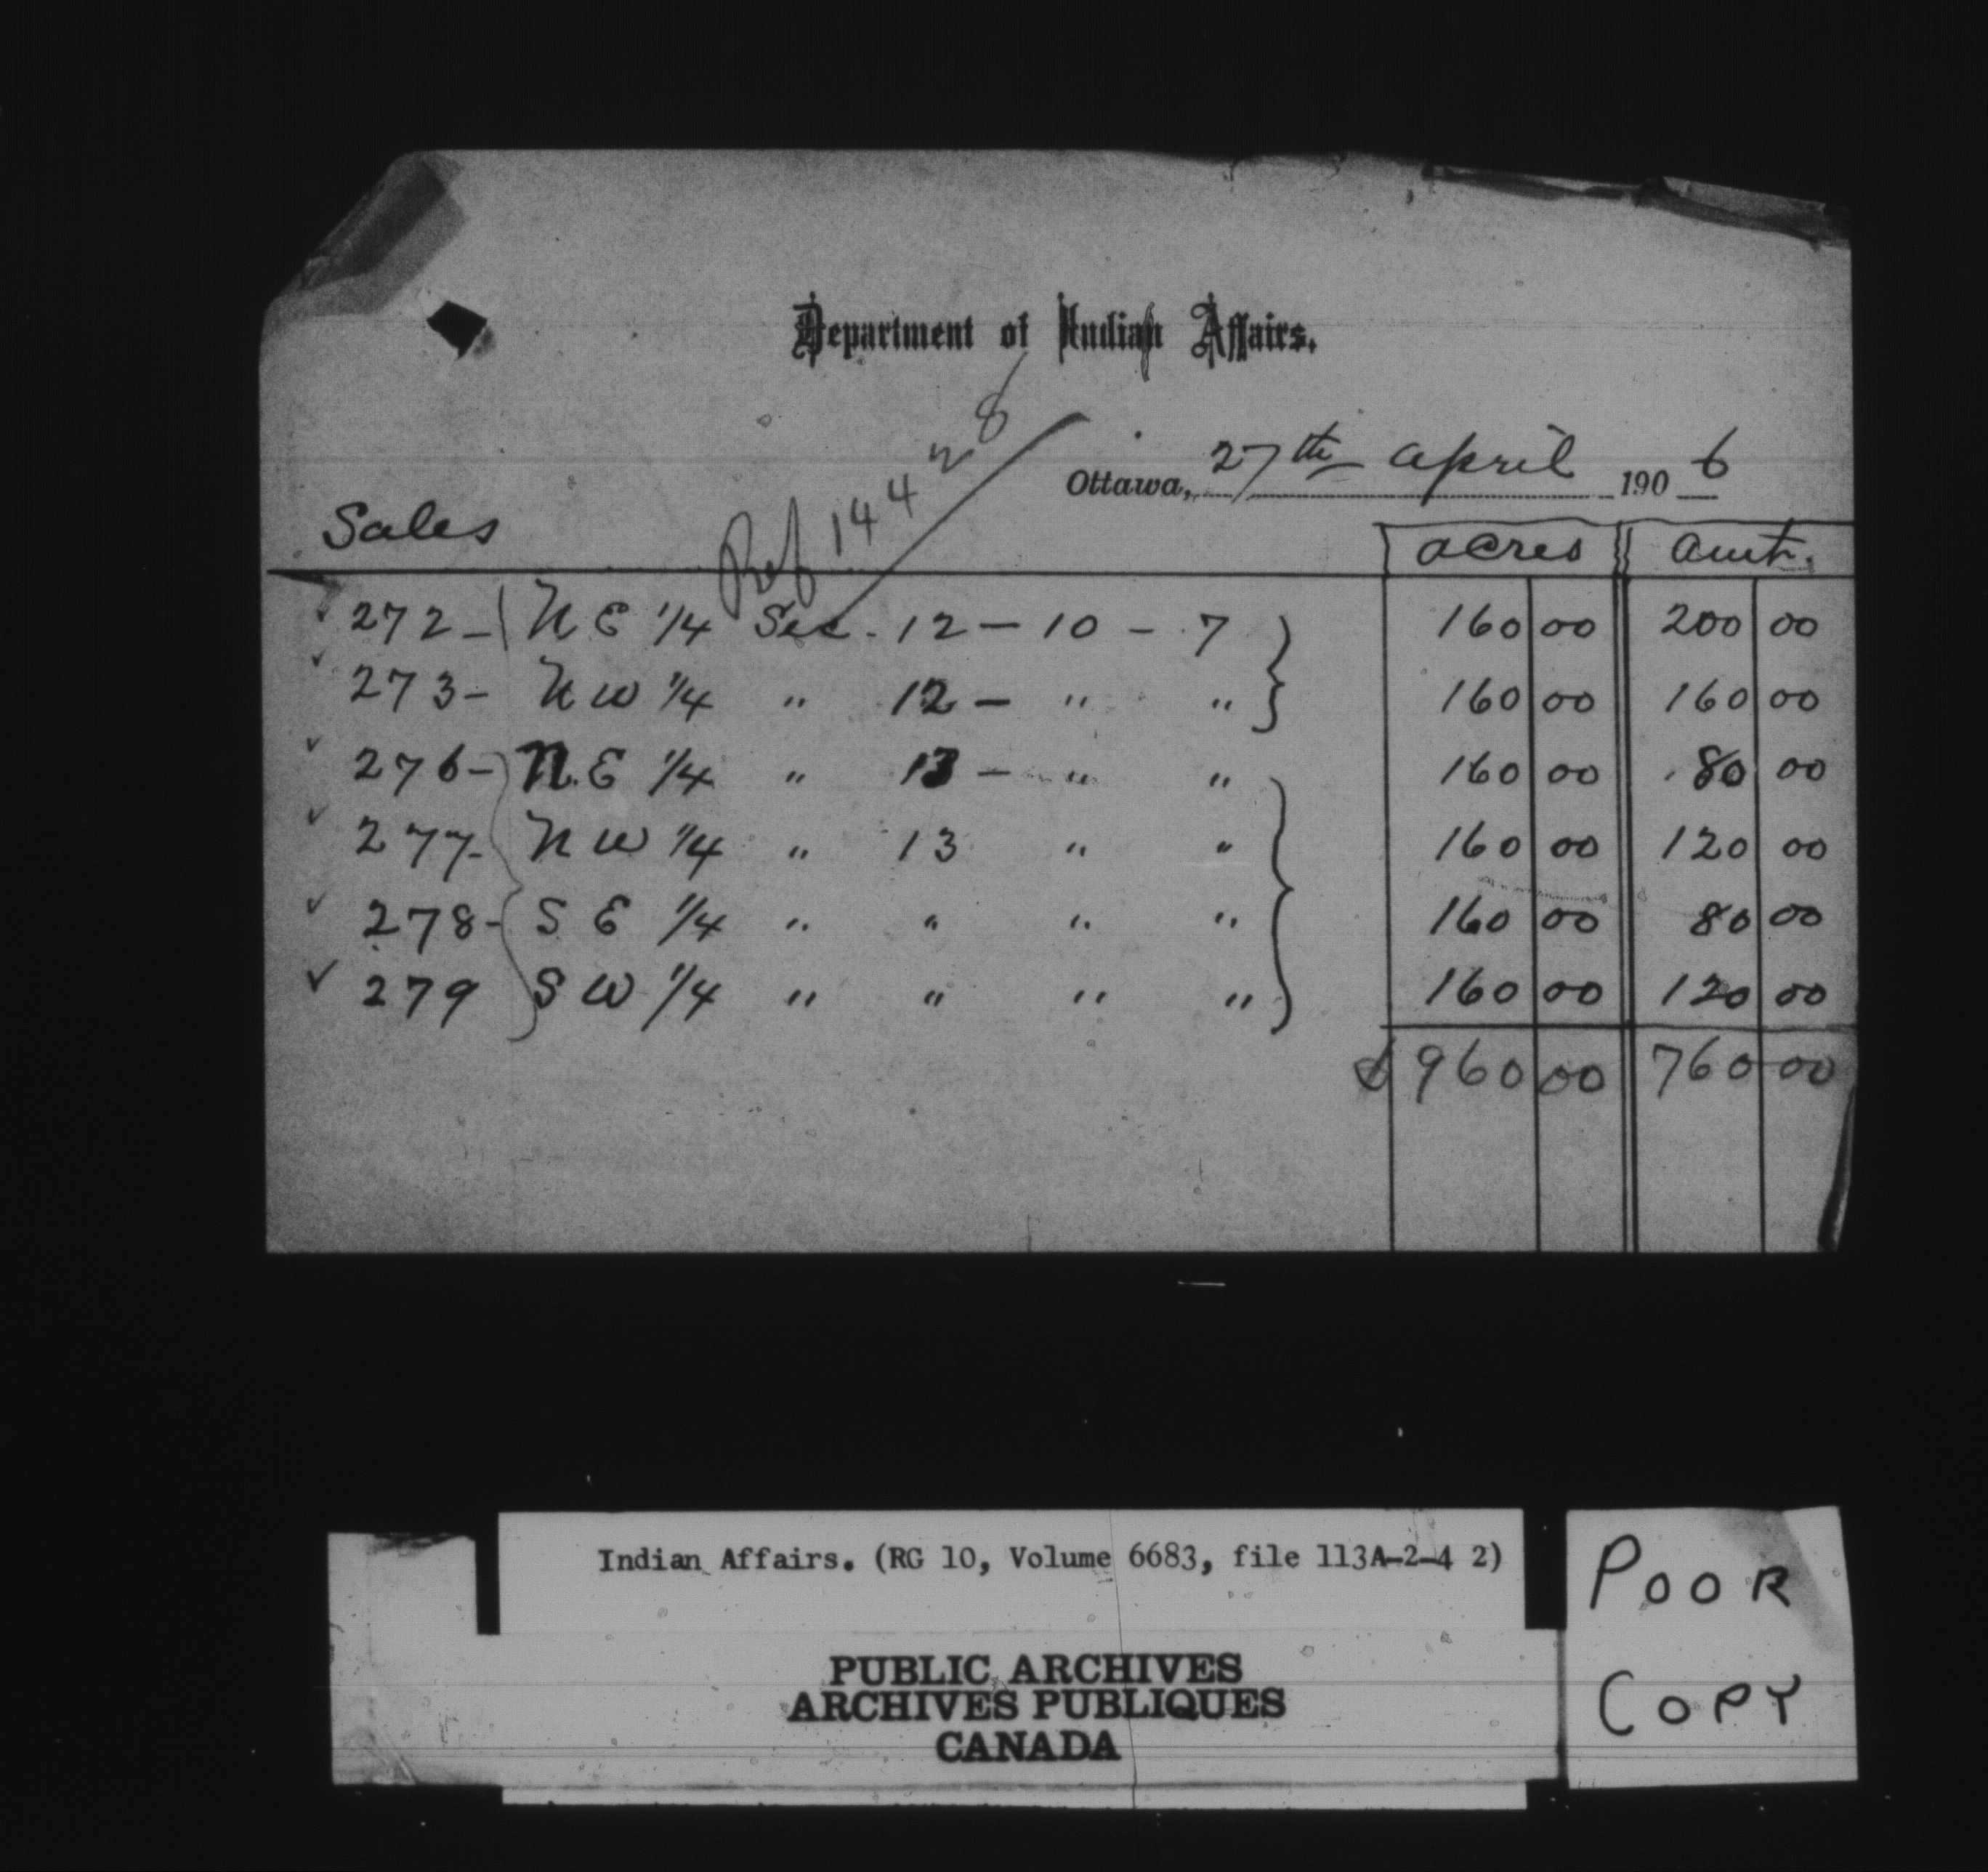 Department of Indian Affairs.
Ref 14428
Ottawa, 27th April 1906
Sales acres amt.
✓ 272 - N E 1/4 Sec. 12 - 10 - 7 160 00 200 00
✓ 273 - N W 1/4 " 12 - " " 160 00 160 00
✓ 276 - N.E 1/4 " 13 - " " 160 00 80 00
✓ 277 - N W 1/4 " 13 " " 160 00 120 00
✓ 278 - S E 1/4 " " " " 160 00 80 00
✓ 279 S W 1/4 " " " " 160 00 120 00
960 00 760 00
Indian Affairs. (RG 10, Volume 6683, file 113A-2-4 2)
PUBLIC ARCHIVES
ARCHIVES PUBLIQUES
CANADA
POOR
COPY